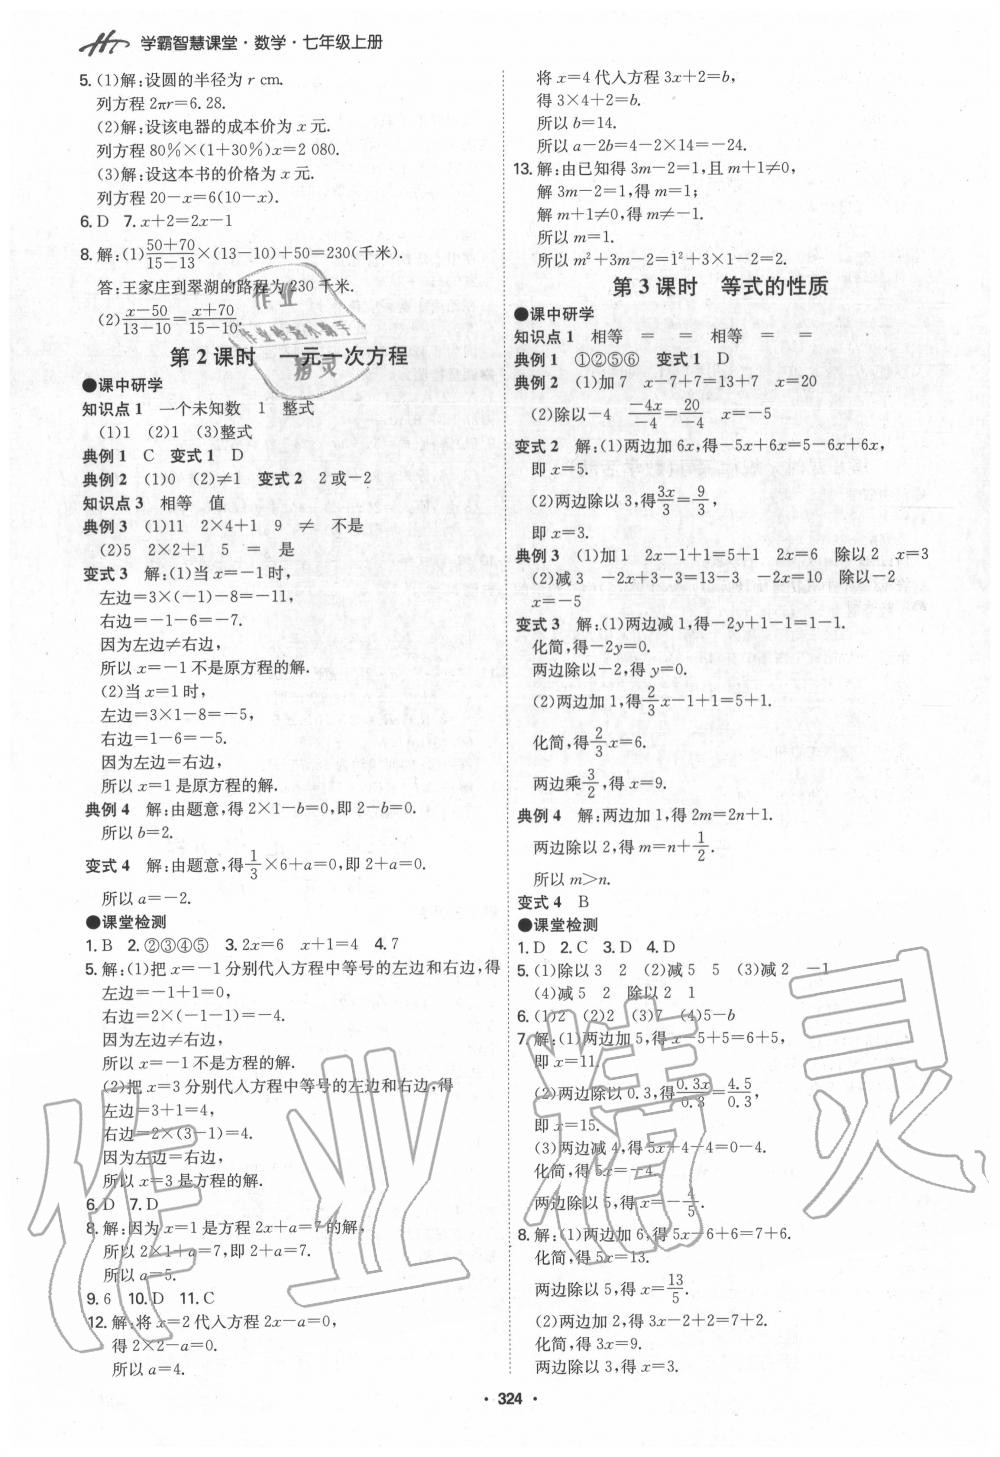 学霸智慧课堂·数学·七年级上册
5. (1)解:设圆的半径为 r cm.
列方程 2πr=6.28.
(2)解:设该电器的成本价为 x 元.
列方程 80%×(1+30%)x=2 080.
(3)解:设这本书的价格为 x 元.
列方程 20-x=6(10-x).
6. D 7. x+2=2x-1
8. 解:(1)\frac{50+70}{15-13}×(13-10)+50=230(千米).
答:王家庄到翠湖的路程为 230 千米.
(2)\frac{x-50}{13-10}=\frac{x+70}{15-10}.
第 2 课时 一元一次方程
●课中研学
知识点 1 一个未知数 1 整式
(1)1 (2)1 (3)整式
典例 1 C 变式 1 D
典例 2 (1)0 (2)≠1 变式 2 2 或-2
知识点 3 相等 值
典例 3 (1)11 2×4+1 9 ≠ 不是
(2)5 2×2+1 5 = 是
变式 3 解:(1)当 x=-1 时,
左边=3×(-1)-8=-11,
右边=-1-6=-7.
因为左边≠右边,
所以 x=-1 不是原方程的解.
(2)当 x=1 时,
左边=3×1-8=-5,
右边=1-6=-5.
因为左边=右边,
所以 x=1 是原方程的解.
典例 4 解:由题意,得 2×1-b=0,即 2-b=0.
所以 b=2.
变式 4 解:由题意,得\frac{1}{3}×6+a=0,即 2+a=0.
所以 a=-2.
●课堂检测
1. B 2. ②③④⑤ 3. 2x=6 x+1=4 4. 7
5. 解:(1)把 x=-1 分别代入方程中等号的左边和右边,得
左边=-1+1=0,
右边=2×(-1-1)=-4.
因为左边≠右边,
所以 x=-1 不是方程的解.
(2)把 x=3 分别代入方程中等号的左边和右边,得
左边=3+1=4,
右边=2×(3-1)=4.
因为左边=右边,
所以 x=3 是方程的解.
6. D 7. D
8. 解:因为 x=1 是方程 2x+a=7 的解,
所以 2×1+a=7,即 2+a=7.
所以 a=5.
9. 6 10. D 11. C
12. 解:将 x=2 代入方程 2x-a=0,
得 2×2-a=0.
所以 a=4.
将 x=4 代入方程 3x+2=b,
得 3×4+2=b.
所以 b=14.
所以 a-2b=4-2×14=-24.
13. 解:由已知得 3m-2=1,且 m+1≠0,
解 3m-2=1,得 m=1;
解 m+1≠0,得 m≠-1.
所以 m=1.
所以 m²+3m-2=1²+3×1-2=2.
第 3 课时 等式的性质
●课中研学
知识点 1 相等 = = 相等 = =
典例 1 ①②⑤⑥ 变式 1 D
典例 2 (1)加 7 x-7+7=13+7 x=20
(2)除以-4 \frac{-4x}{-4}=\frac{20}{-4} x=-5
变式 2 解:(1)两边加 6x,得-5x+6x=5-6x+6x,
即 x=5.
(2)两边除以 3,得\frac{3x}{3}=\frac{9}{3},
即 x=3.
典例 3 (1)加 1 2x-1+1=5+1 2x=6 除以 2 x=3
(2)减 3 -2x+3-3=13-3 -2x=10 除以-2
x=-5
变式 3 解:(1)两边减 1,得-2y+1-1=1-1.
化简,得-2y=0.
两边除以-2,得 y=0.
(2)两边加 1,得\frac{2}{3}x-1+1=5+1.
化简,得\frac{2}{3}x=6.
两边乘\frac{3}{2},得 x=9.
典例 4 解:两边加 1,得 2m=2n+1.
两边除以 2,得 m=n+\frac{1}{2}.
所以 m>n.
变式 4 B
●课堂检测
1. D 2. C 3. D 4. D
5. (1)除以 3 2 (2)减 5 5 (3)减 2 -1
(4)减 5 2 除以 2 1
6. (1)2 (2)2 (3)7 (4)5-b
7. 解:(1)两边加 5,得 x-5+5=6+5,
即 x=11.
(2)两边除以 0.3,得\frac{0.3x}{0.3}=\frac{4.5}{0.3},
即 x=15.
(3)两边减 4,得 5x+4-4=0-4.
化简,得 5x=-4.
两边除以 5,得 x=-\frac{4}{5}.
8. 解:(1)两边加 6,得 5x-6+6=7+6.
化简,得 5x=13.
两边除以 5,得 x=\frac{13}{5}.
(2)两边加 2,得 3x-2+2=7+2.
化简,得 3x=9.
两边除以 3,得 x=3.
·324·
作业精灵